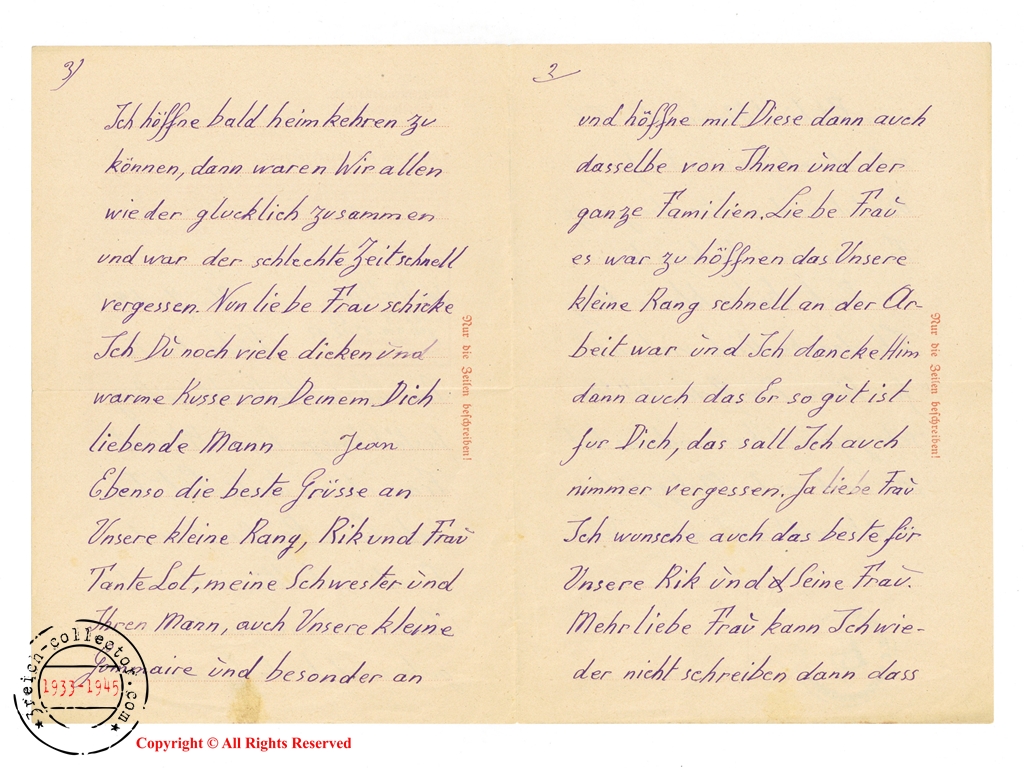 3)
Ich höffne bald heimkehren zu
können, dann waren Wir allen
wieder glucklich zusammen
und war der schlechte Zeit schnell
vergessen. Nun liebe Frau schicke
Ich Dù noch viele dicken ùnd
warme Kusse von Deinem Dich
liebende Mann Jean
Ebenso die beste Grüsse an
Unsere kleine Rang, Rik und Fraù
Tante Lot, meine Schwester ùnd
Ihren Mann, auch Unsere kleine
Gommaire ùnd besonder an
Nur die Zeilen beschreiben!
2
und höffne mit Diese dann auch
dasselbe von Ihnen ùnd der
ganze Familien. Liebe Fraù
es war zu höffnen das Unsere
kleine Rang schnell an der Ar-
beit war ùnd Ich dancke Him
dann auch das Er so gùt ist
fur Dich, das sall Ich auch
nimmer vergessen. Ja liebe Fraù
Ich wunsche auch das beste für
Unsere Rik ùnd Seine Fraù.
Mehr liebe Fraù kann Ich wie-
der nicht schreiben dann dass
Nur die Zeilen beschreiben!
3reich-collector.com
1933-1945
Copyright © All Rights Reserved